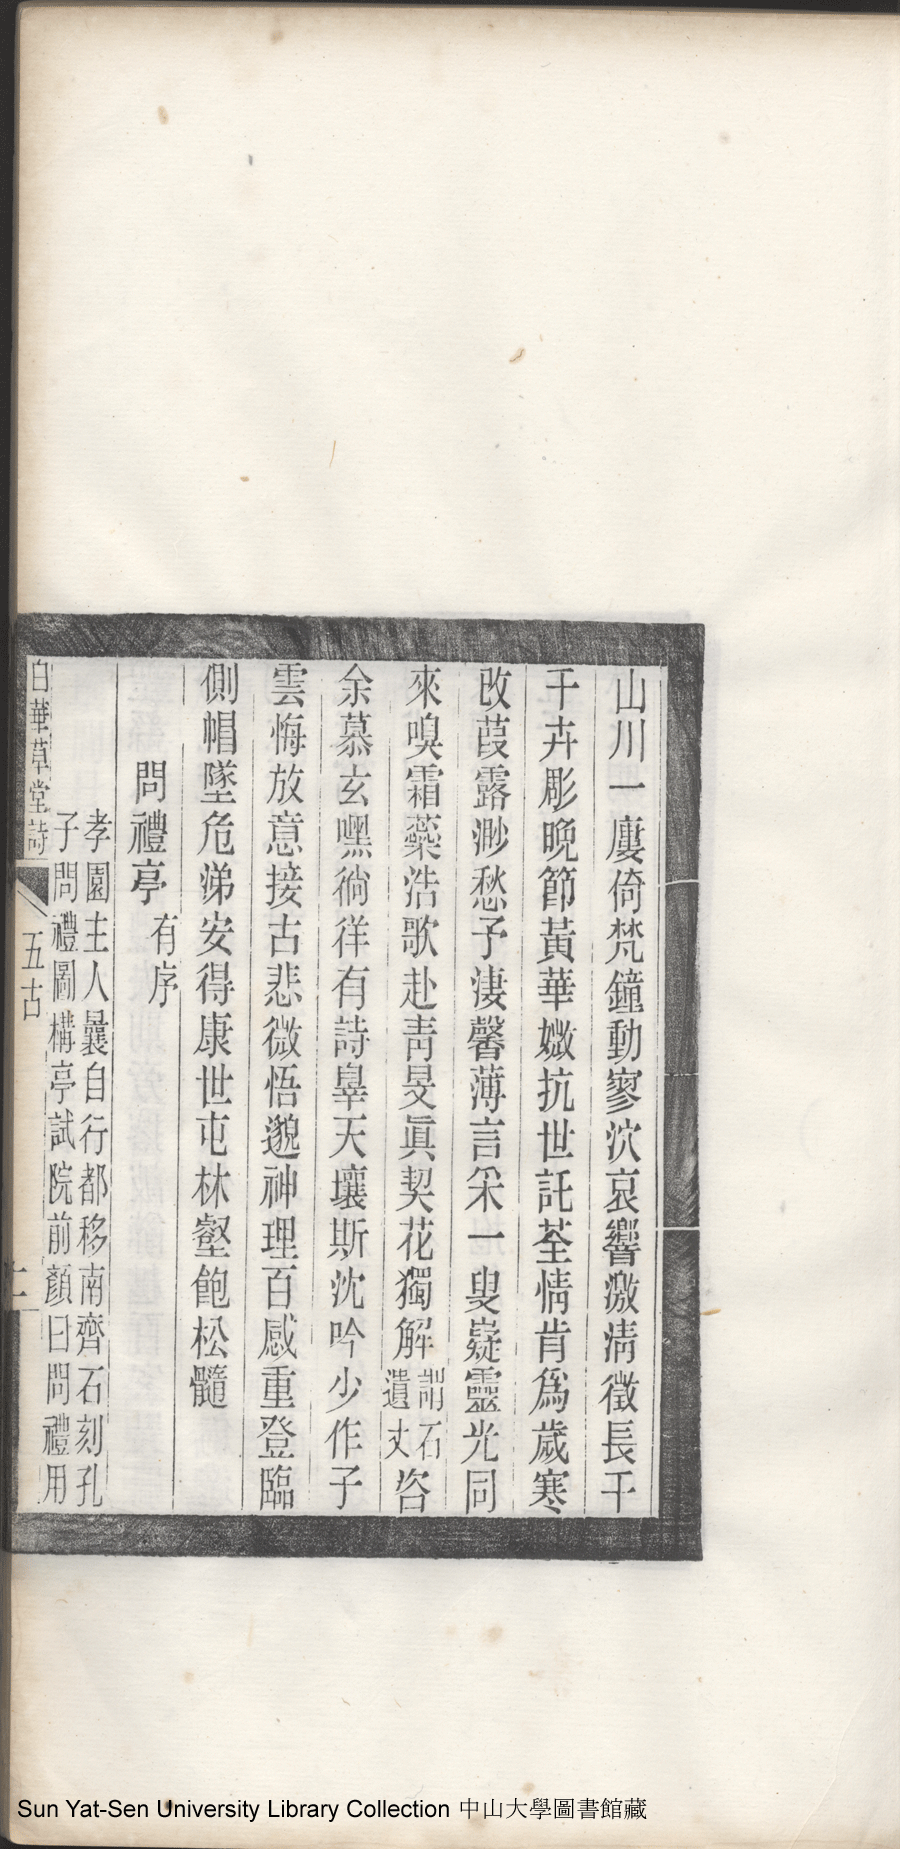 山川一廔倚梵鐘動寥泬哀響激淸徵長干
千卉彫晚節黃華媺抗世託荃情肯爲歲寒
改葭露渺愁予淒馨薄言采一叟嶷靈光同
來嗅霜蘂浩歌赴靑旻眞契花獨解謂石遺丈咨
余慕玄嘿徜徉有詩辠天壤斯沈吟少作子
雲悔放意接古悲微悟邈神理百感重登臨
側帽墜危涕安得康世屯林壑飽松髓
問禮亭有序
孝園主人曩自行都移南齊石刻孔
子問禮圖構亭試院前顏曰問禮用
白華草堂詩 五古
Sun Yat-Sen University Library Collection 中山大學圖書館藏